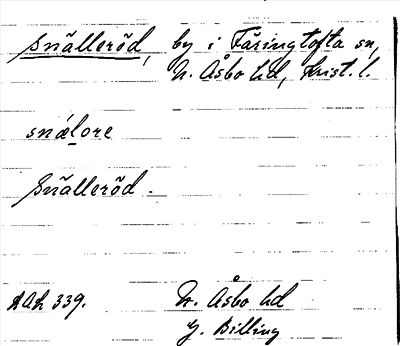 Snälleröd, by i Färingtofta sn,
N. Åsbo hd, Krist. l.
snælore
Snälleröd.
N. Åsbo hd
339.
G. Billing